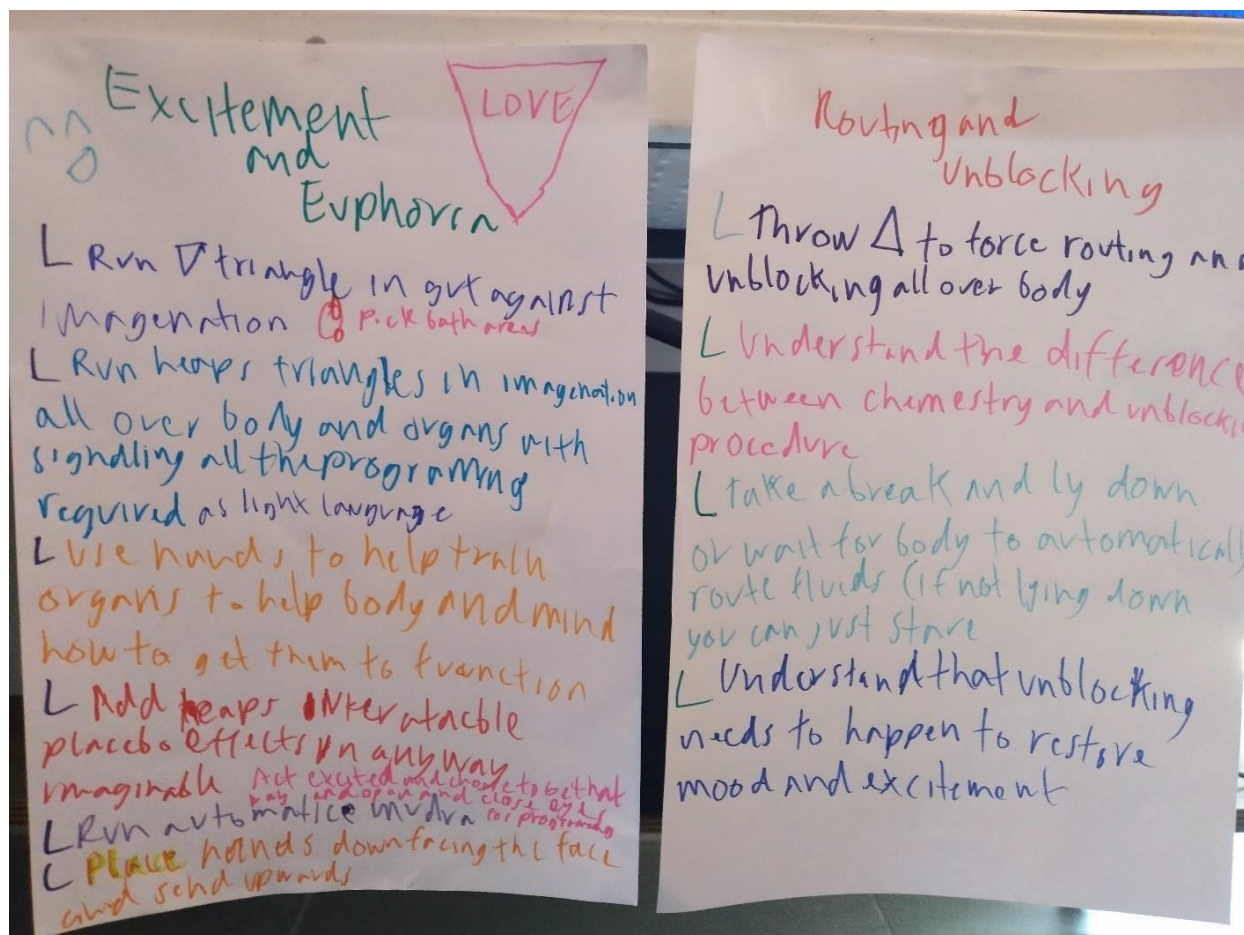 Excitement
and
Euphoria
LOVE
L Run ▽ triangle in gut against
imagenation pick both areas
L Run heaps triangles in imagenation
all over body and organs with
signalling all the programing
required as light language
L Use hands to help train
organs to help body and mind
how to get them to function
L Add heaps
placebo effects in anyway
imaginable Act excited and chose to be that
way and open and close eyes
for programing
L Run automatice mudra
L Place hands down facing the face
and send upwards
Routing and
Unblocking
L Throw △ to force routing an
unblocking all over body
L Understand the difference
between chemestry and unblocki
procedure
L take a break and ly down
or wait for body to automaticall
route fluids (if not lying down
you can just stare
L Understand that unblocking
needs to happen to restore
mood and excitement